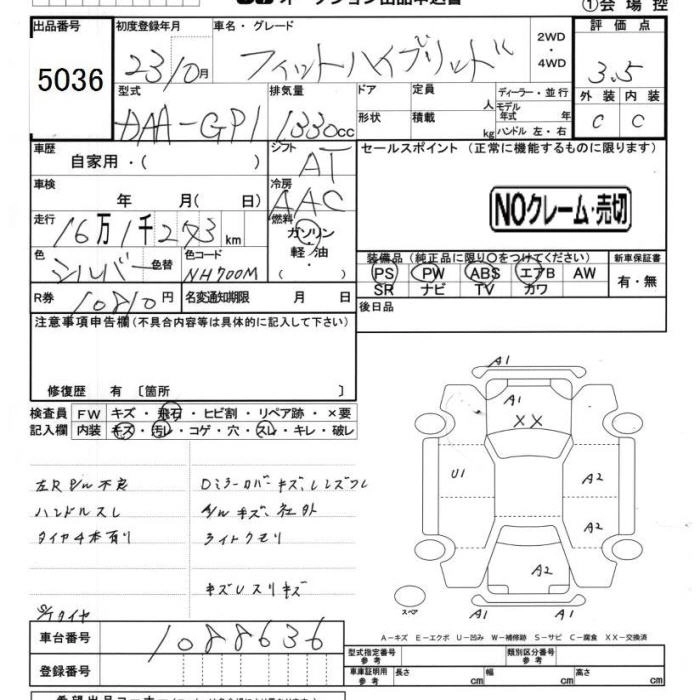 オークション出品申込書
①会場控
出品番号 初度登録年月 車名・グレード 2WD・4WD 評価点
5036 23/10月 フィットハイブリッド 3.5
型式 排気量 ドア 定員 人 ディーラー・並行 外装 内装
DAA-GP1 1330cc 形状 積載 kg モデル年式 年 ハンドル 左・右 C C
車歴 自家用・( ) シフト AT セールスポイント (正常に機能するものに限ります)
車検 年 月(日) 冷房 AAC
NOクレーム・売切
走行 16万1千273km 燃料 ガソリン・軽油・
装備品(純正品に限り〇をつけてください) 新車保証書
色 シルバー 色替 色コード NH700M
PS PW ABS エアB AW 有・無
SR ナビ TV カワ
R券 10810円 名変通知期限 月 日 後日品
注意事項申告欄(不具合内容等は具体的に記入して下さい)
修復歴 有〔箇所 〕
検査員 FW キズ・飛石・ヒビ割・リペア跡・×要
記入欄 内装 キズ・汚レ・コゲ・穴・スレ・キレ・破レ
A1
A1
XX
U1 A2
A2
A2
スペア A1 A1
左R P/W 不良 Dミラーカバーキズ、レンズワレ
ハンドルスレ A/W キズ、社外
タイヤ4本有り ライトクモリ
キズUスリキズ
S/Tタイヤ
A-キズ E-エクボ U-凹み W-補修跡 S-サビ C-腐食 XX-交換済
車台番号 1088636
型式指定番号 参考 類別区分番号 参考
登録番号 車庫証明用 参考 長さ cm 幅 cm 高さ cm